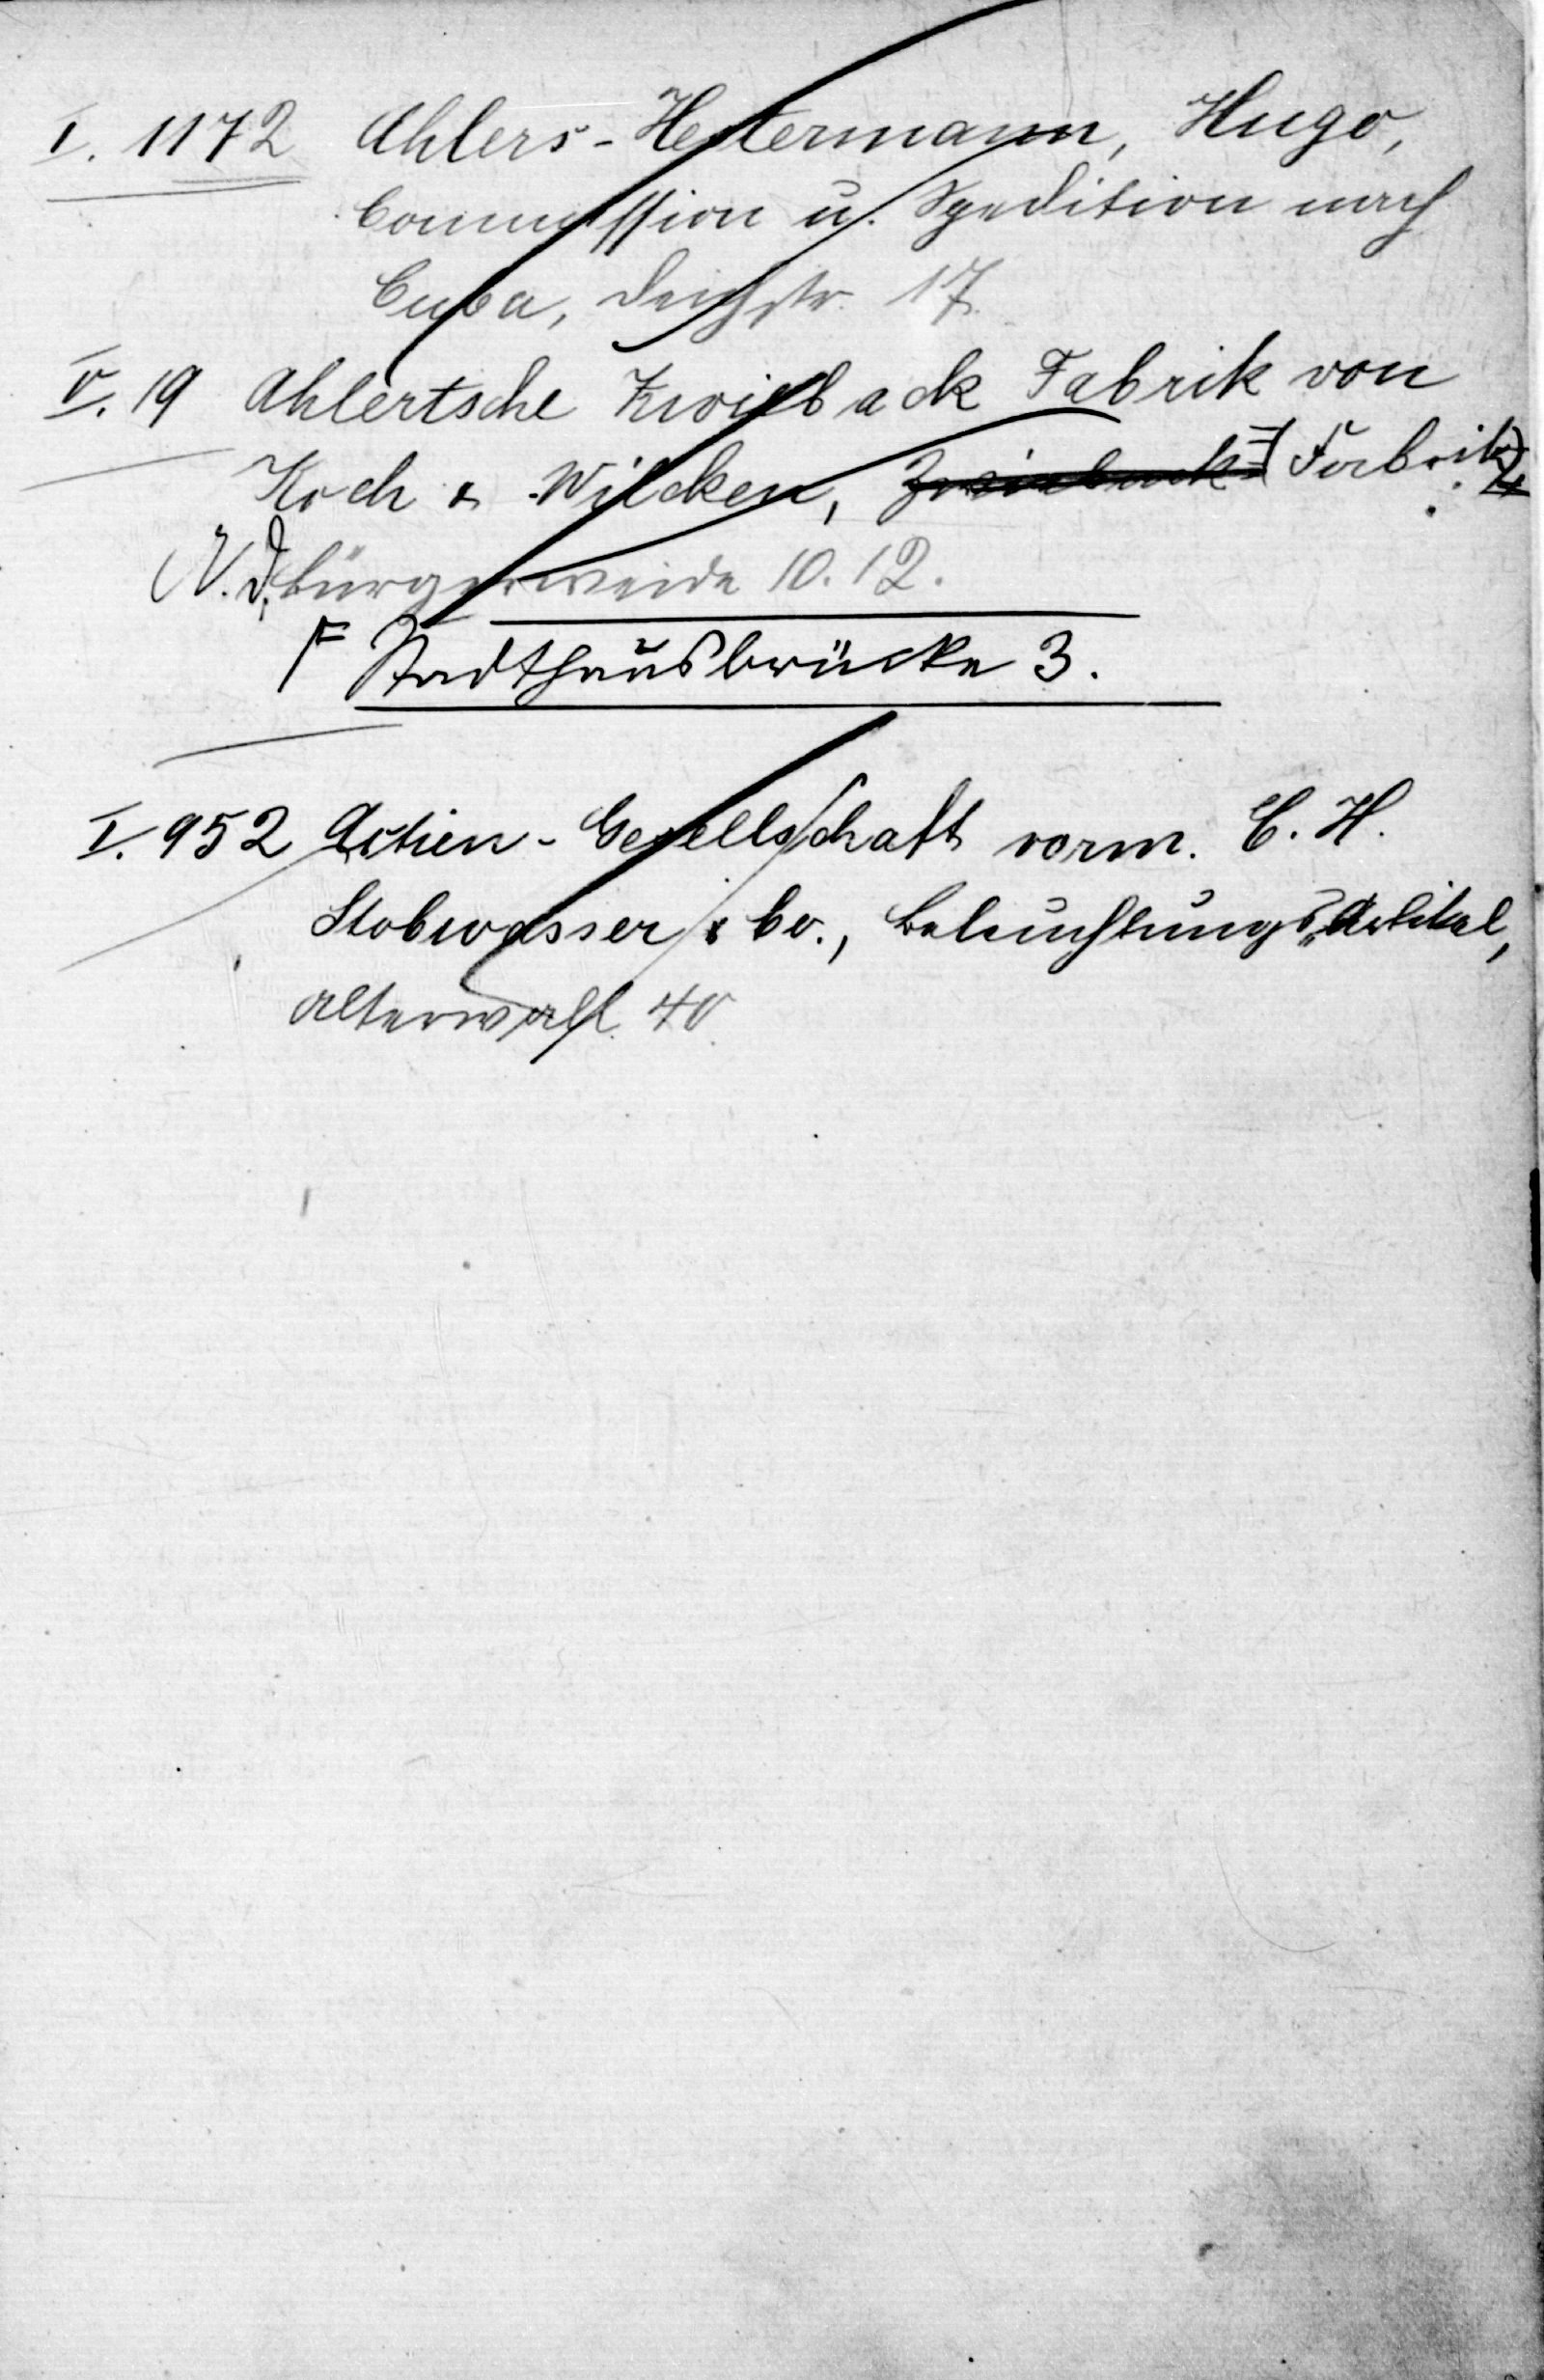 I. 1172 Ahlers-Hestermann, Hugo,
Commission u. Spedition nach
Cuba, Deichstr. 17.
V. 19 Ahlertsche Zwieback Fabrik von
Koch & Wilcken, Zwieback= Fabrik,
N. d. Bürgerweide 10. 12.
F Stadthausbrücke 3.
I. 952 Actien-Gesellschaft vorm. C. H.
Stobwasser & Co., Beleuchtungs„Artikel,
alterwall. 40.